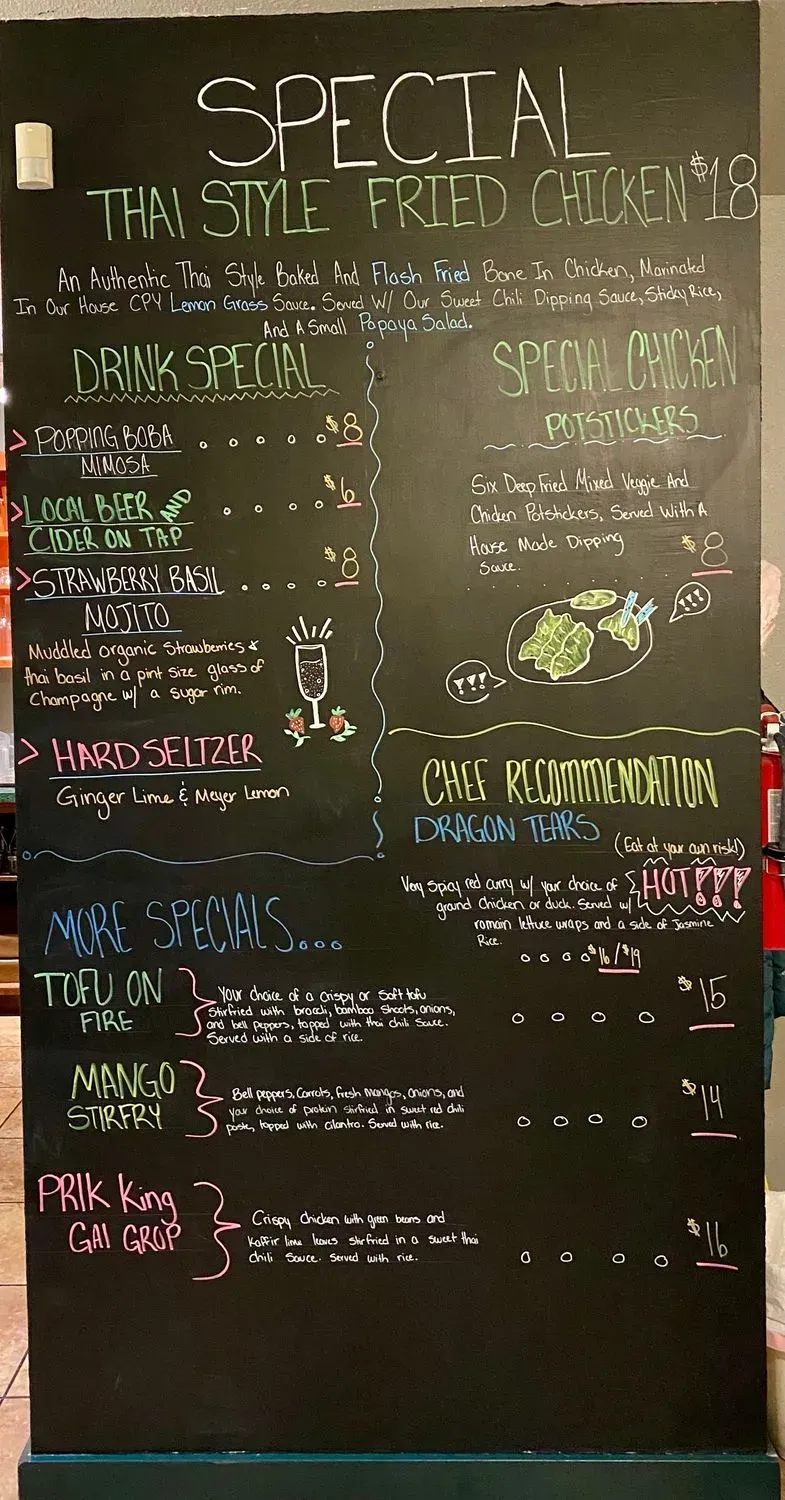 SPECIAL
THAI STYLE FRIED CHICKEN $18
An Authentic Thai Style Baked And Flash Fried Bone In Chicken, Marinated
In Our House CPY Lemon Grass Sauce. Served W/ Our Sweet Chili Dipping Sauce, Sticky Rice,
And A Small Papaya Salad.
DRINK SPECIAL
> POPPING BOBA $8
MIMOSA
> LOCAL BEER AND $6
CIDER ON TAP
> STRAWBERRY BASIL $8
MOJITO
Muddled organic Strawberries &
thai basil in a pint size glass of
Champagne w/ a sugar rim.
> HARD SELTZER
Ginger Lime & Meyer Lemon
SPECIAL CHICKEN
POTSTICKERS
Six Deep Fried Mixed Veggie And
Chicken Potstickers, Served With A
House Made Dipping
Sauce. $8
!!!
!!!
CHEF RECOMMENDATION
DRAGON TEARS
(Eat at your own risk!)
Very spicy red curry w/ your choice of HOT!!!
ground chicken or duck. Served w/
romain lettuce wraps and a side of Jasmine
Rice.
$16/$19
MORE SPECIALS...
TOFU ON
FIRE
Your choice of a crispy or soft tofu
stirfried with brocoli, bamboo shoots, onions,
and bell peppers, topped with thai chili sauce.
Served with a side of rice.
$15
MANGO
STIRFRY
Bell peppers, Carrots, fresh mangos, onions, and
your choice of protein stirfried in sweet red chili
paste, topped with cilantro. Served with rice.
$14
PRIK King
GAI GROP
Crispy chicken with green beans and
Kaffir lime leaves stirfried in a sweet thai
chili sauce. served with rice.
$16